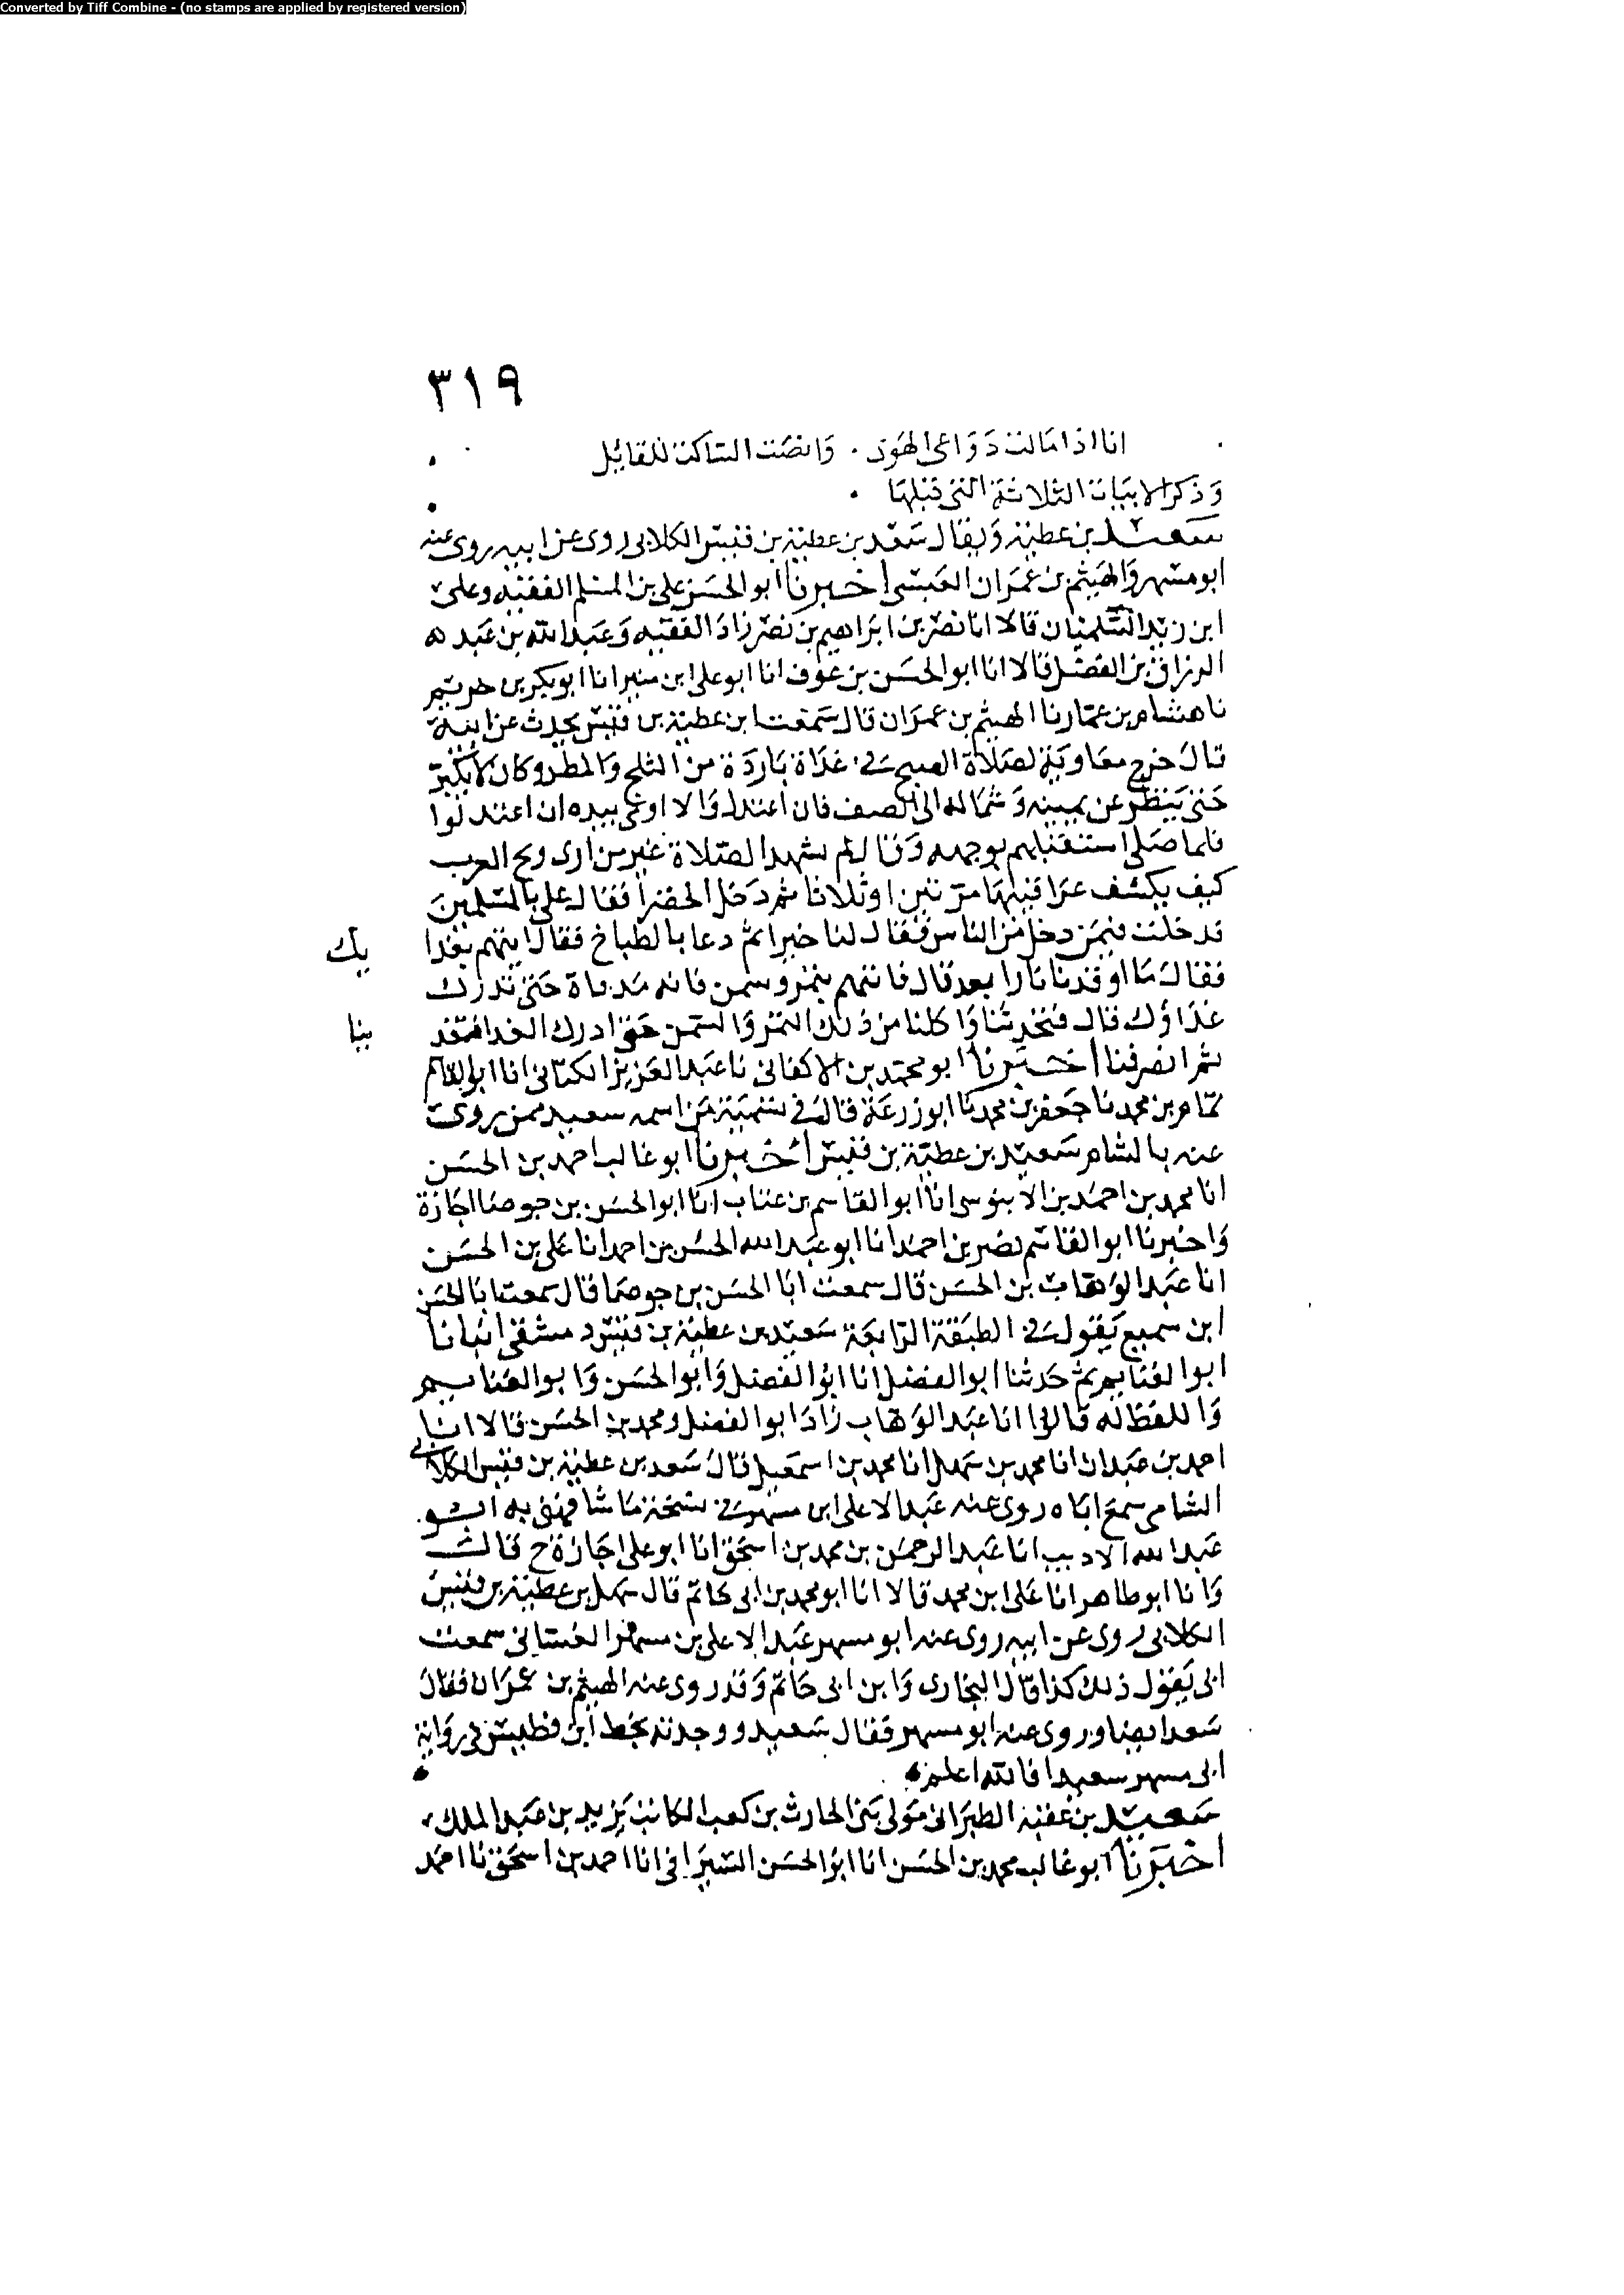 Converted by Tiff Combine - (no stamps are applied by registered version)
٣١٩
انا اذا مالت دَوَاعى الهَوى . وَانصَت السَّاكت للقايل
وَذكر الابيَات الثلاثة التى قبلهَا .
سَعيد بن عطيّة وَيقال سَعْد بن عطيّة بن قيس الكلابى روى عن ابيه روى عنه
ابو مسهر وَالهَيثم بن عمرَان العَبسى اخبرنا ابو الحسَن على بن المسَلم الفقيه وعلى
ابن زيد السّلميان قالا انا نصْر بن ابرَاهيم بن نصْر زادَ الفقيه وَعَبد الله بن عَبد
الرزاق بن الفضل قالا انا ابو الحسَن بن عوف انا ابو على ابن منير انا ابو بكر بن خريم
نا هشام بن عمّار نا الهيثم بن عمرَان قال سَمعت ابن عطيّة بن قيس يحدث عن ابيه
قال خرج معَاويَة لصَلاة الصبح فى غدَاة بَاردَة من الثلج وَالمطر وكان لا يكبّر
حَتى يَنظر عن يمينه وَشمَاله الى الصف فان اعتدل وَالا اوى بيده ان اعتدلوا
فلما صَلى استقبَلهم بوجهه وَقال لم يشهد الصّلاة غير من ارى ويح العرب
كيف يكشف عرَاقيبهَا مرّتين او ثلاثا ثم دَخل الخضرا فقال على بالمسَلمين
قد خلت فيمَن دخل مَن الناس فقال لنا خيرا ثمّ دعا بالطباخ فقال ايتهم بغدا
يك
فقال مَا اوقدنا نارا بعد قال فاتهم بتمرٍ وسمن فانه مَدفاة حَتى تدرك
غدَاؤك قال فتحَدثنا وَاكلنا من ذلك التمر وَالسّمن حَتى ادرك الغدا فتغد
ينا
ثمر انصرفنا اخبَرنا ابو محمّد بن الاكفانى نا عَبد العَزيز الكتّانى انا ابو القاسم
تمّام بن محمد نا جَعفر بن محمد نا ابو زرعَة قال فى تسْميَة مَن اسمه سعيد ممن روى
عنه بالشام سَعيد بن عطيّة بن قيسٍ اخبرنا ابو غالب احمد بن الحسَن
انا محمد بن احمَد بن الابنوسى انا ابو القاسم بن عتاب انا ابو الحسَن بن جوصَا اجَازة
وَاخبرنا ابو القاسم نصر بن احمَد انا ابو عَبد الله الحسَن بن احمد انا عَلى بن الحسَن
انا عَبد الوَهاب بن الحسَن قال سمعت ابَا الحسَن بن جوصَا قال سمعت ابا الحسَن
ابن سميع يَقول فى الطبَقة الرّابعَة سَعيْد بن عطيّة بن قيس دمشقى انبانا
ابو الغنايم ثمّ حَدثنا ابو الفضل انا ابو الفضل وَابو الحسَن وَابو الغنايم
وَاللفظ له قالوا انا عَبد الوَهاب زادَ ابو الفضل ومحمد بن الحسَن قالا انا
احمد بن عَبدان انا محمد بن سَهل انا محمد بن اسمعيل قال سَعد بن عطيّة بن قيس الكلابى
الشامى سمعَ ابَاه روى عنه عَبد الاعلى ابن مسهر
عَبد الله الاديب انا عَبد الرحمَن بن محمد بن اسحق انا ابو على اجَازة ح قال
وَانا ابو طاهر انا عَلى ابن محمد قالا انا ابو محمد بن ابى حَاتم قال سهل بن عطيّة بن قيس
الكلابى روى عن ابيه روى عنه ابو مسهر عَبد الاعلى بن مسهر الغسّانى سمعت
ابى يَقول ذلك كذا قال البخارى وَابن ابى حَاتم وَقد روى عنه الهيثم بن عمرَان فقال
سَعد ايضا وروى عنه ابو مسهر فقال سَعيد ووجدته بخط ابن فطيس فى روَاية
ابى مسهر سعيد ا فالله اعلم
سَعيد بن عقبة الطبرَانى مَولى بَنى الحارث بن كعب الكاتب يَزيد بن عَبد الملك
اخبَرنا ابو غالب محمد بن الحسَن انا ابو الحسَن السّيرَافى انا احمد بن اسحق نا احمَد